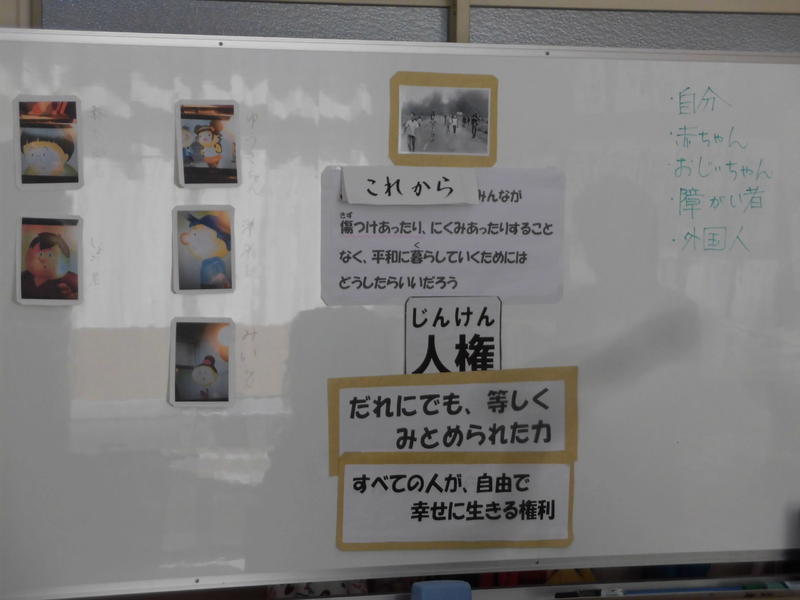 これから
みんなが
傷つけあったり、にくみあったりすること
なく、平和に暮らしていくためには
どうしたらいいだろう
じんけん
人権
だれにでも、等しく
みとめられた力
すべての人が、自由で
幸せに生きる権利
・自分
・赤ちゃん
・おじいちゃん
・障がい者
・外国人